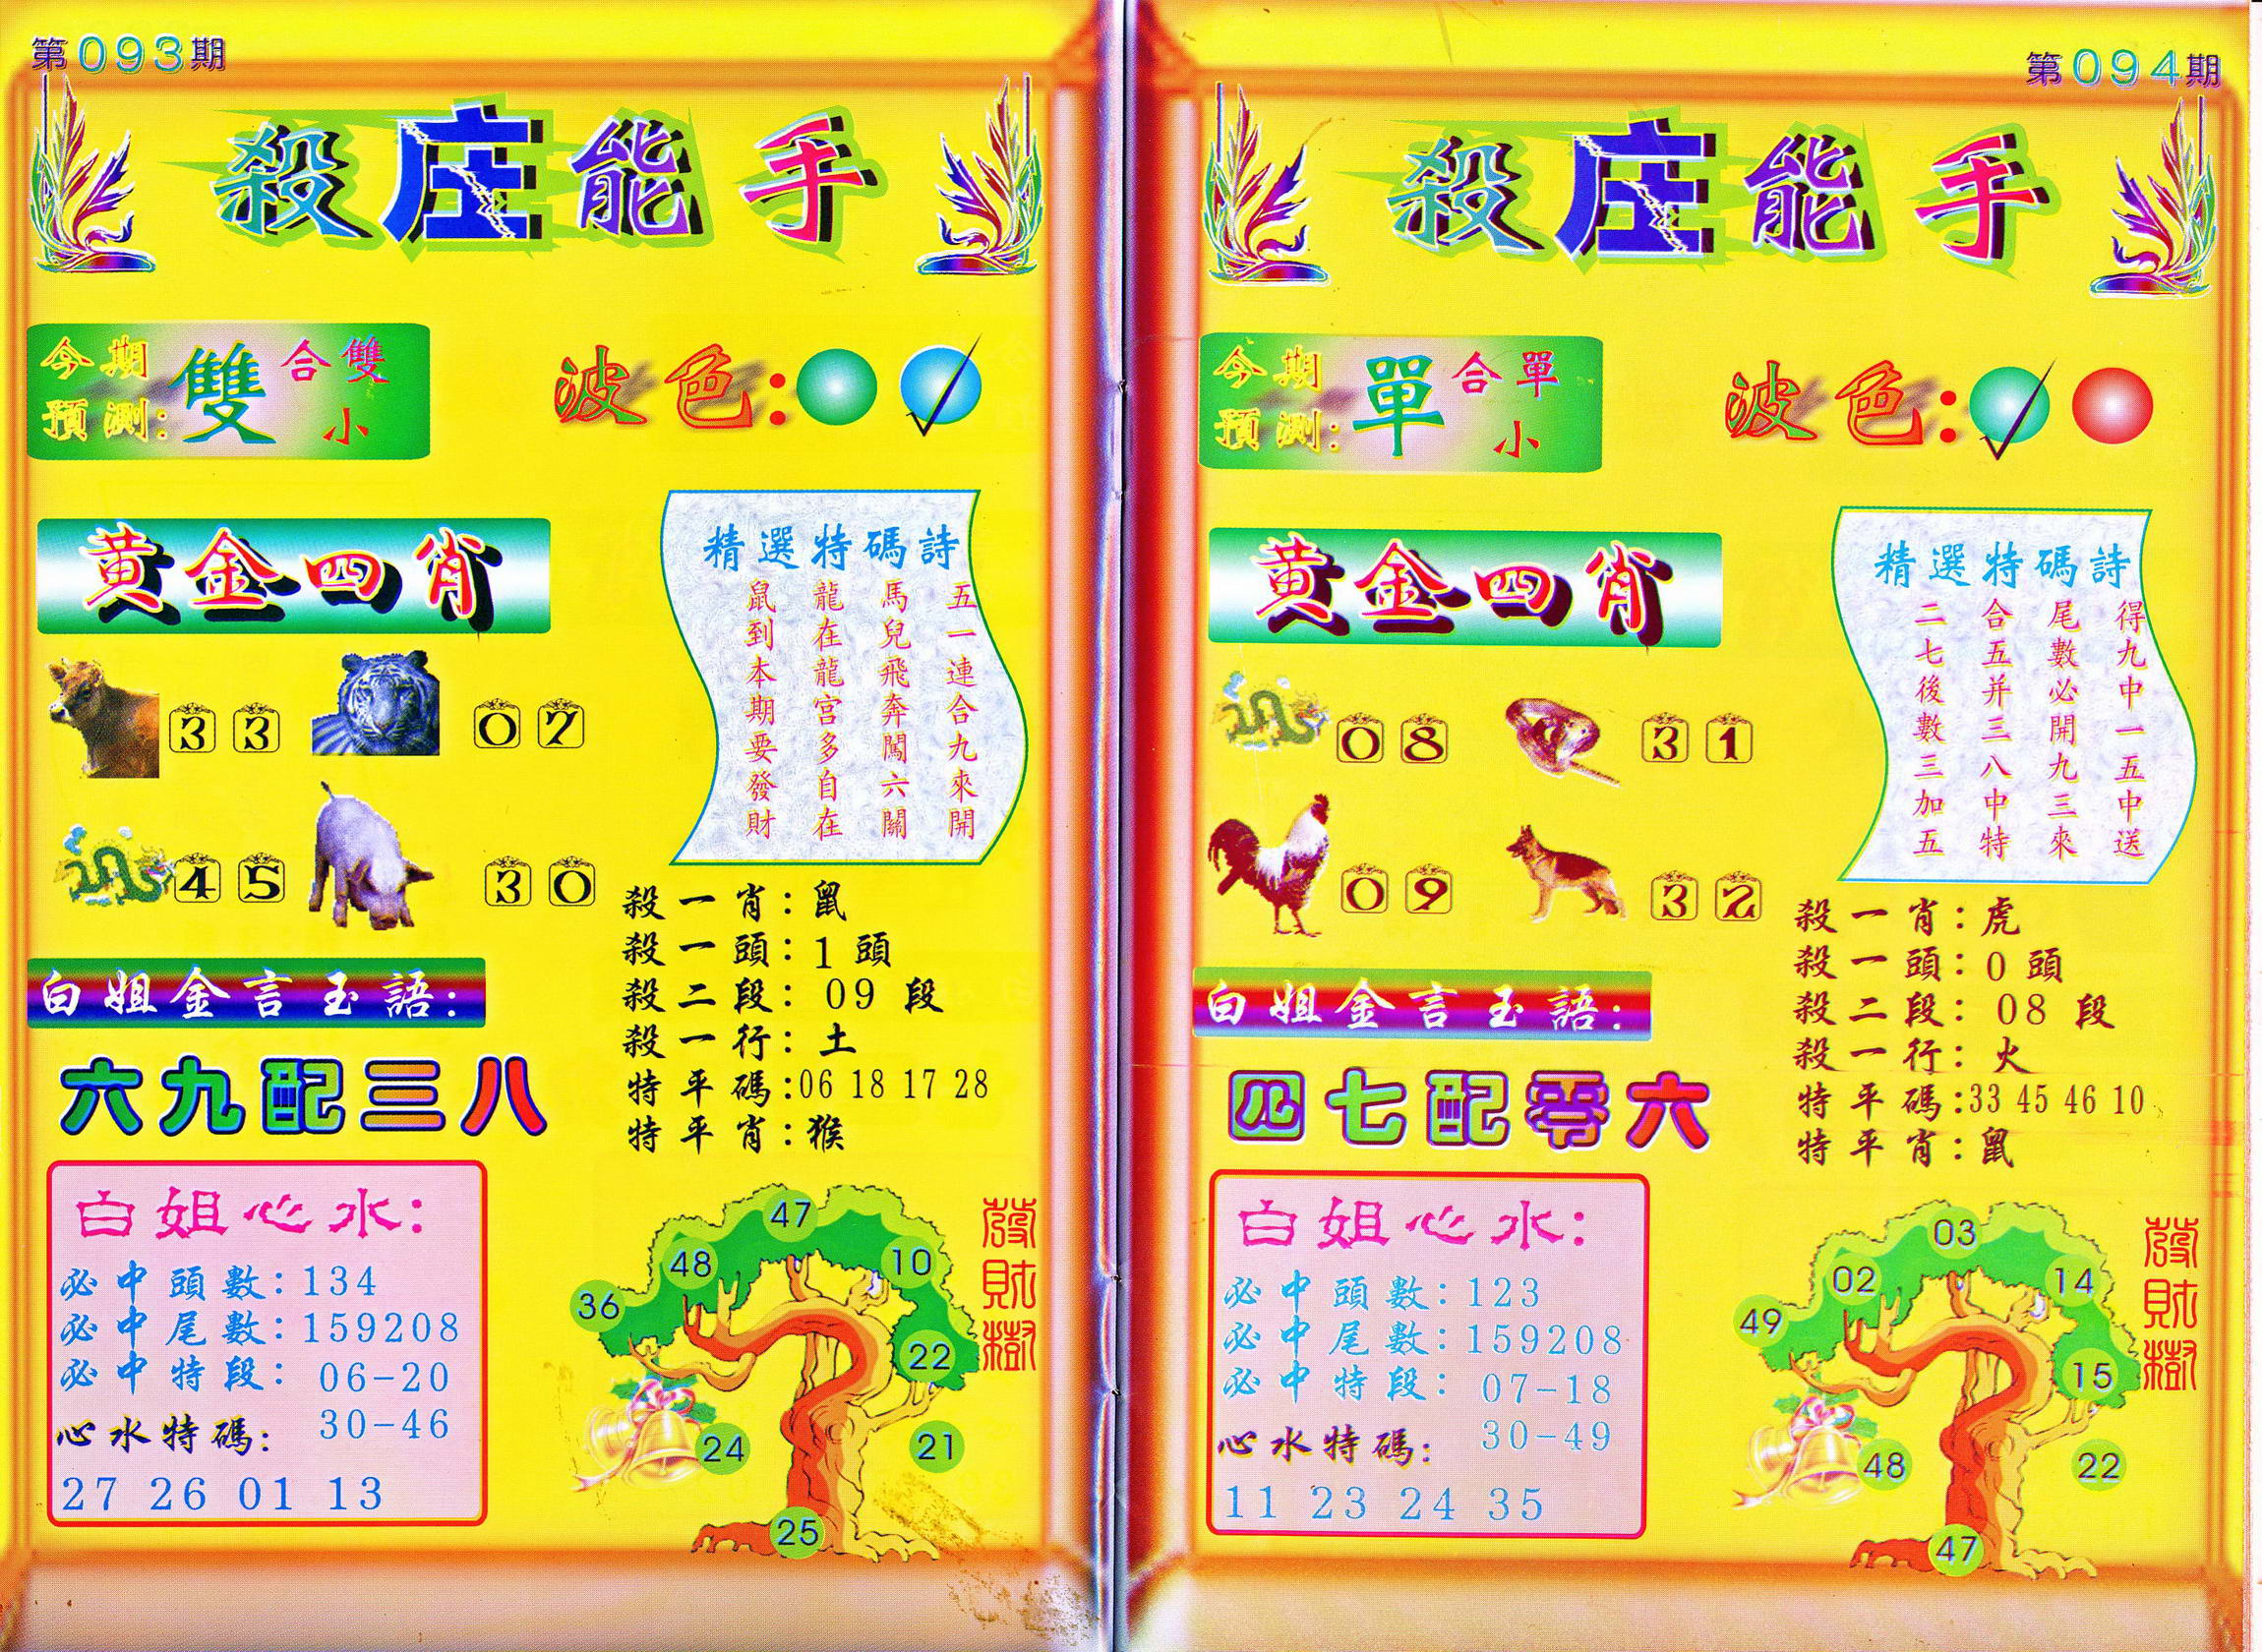 第093期
殺庄能手
今期
預測:
雙
合雙
小
波色:
黃金四肖
33
07
45
30
精選特碼詩
五一連合九來開
馬兒飛奔闖六關
龍在龍宮多自在
鼠到本期要發財
殺一肖:鼠
殺一頭:1頭
殺二段:09段
殺一行:土
特平碼:06 18 17 28
特平肖:猴
白姐金言玉語:
六九配三八
白姐心水:
必中頭數:134
必中尾數:159208
必中特段:06-20
30-46
心水特碼:
27 26 01 13
47
48
10
36
22
24
21
25
發財樹
第094期
殺庄能手
今期
預測:
單
合單
小
波色:
黃金四肖
08
31
09
32
精選特碼詩
得九中一五中送
尾數必開九三來
合五并三八中特
二七後數三加五
殺一肖:虎
殺一頭:0頭
殺二段:08段
殺一行:火
特平碼:33 45 46 10
特平肖:鼠
白姐金言玉語:
四七配零六
白姐心水:
必中頭數:123
必中尾數:159208
必中特段:07-18
30-49
心水特碼:
11 23 24 35
03
02
14
49
15
48
22
47
發財樹